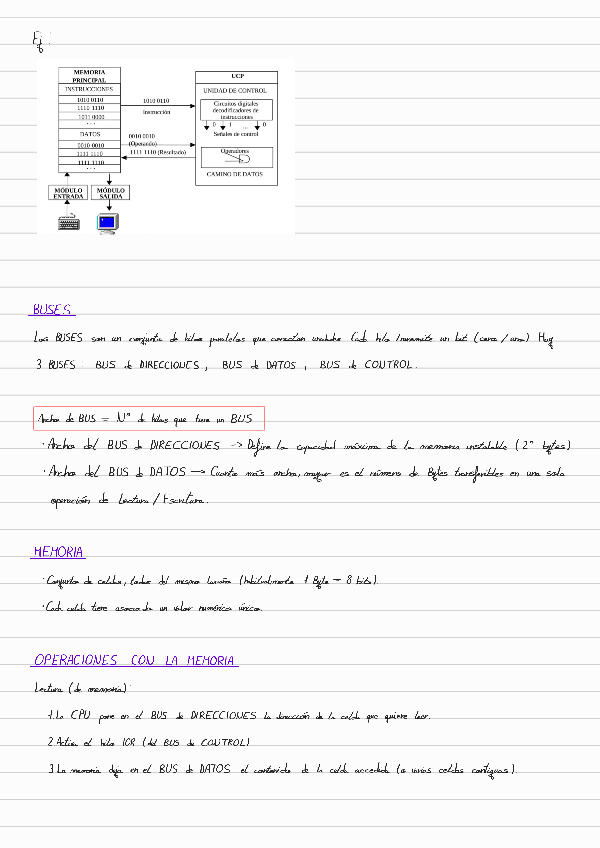 Ej:
MEMORIA PRINCIPAL
INSTRUCCIONES
1010 0110
1110 1110
1011 0000
...
DATOS
0010 0010
1111 1110
1111 1110
...
1010 0110
Instrucción
0010 0010
(Operando)
1111 1110 (Resultado)
UCP
UNIDAD DE CONTROL
Circuitos digitales
decodificadores de
instrucciones
0 1 ... 0
Señales de control
Operadores
CAMINO DE DATOS
MÓDULO ENTRADA
MÓDULO SALIDA
BUSES
Los BUSES son un conjunto de hilos paralelos que conectan Cada hilo transmite un bit (cero / uno) Hay
3 BUSES: BUS de DIRECCIONES, BUS de DATOS, BUS de CONTROL.
Ancho de BUS = Nº de hilos que tiene un BUS
· Ancho del BUS de DIRECCIONES -> Define la capacidad máxima de la memoria instalable (2ⁿ bytes)
· Ancho del BUS de DATOS -> Cuanto más ancho, mayor es el número de Bytes transferibles en una sola
operación de Lectura / Escritura.
MEMORIA
· Conjunto de celdas, todas del mismo tamaño (habitualmente 1 Byte = 8 bits).
· Cada celda tiene asociada un valor numérico único.
OPERACIONES CON LA MEMORIA
Lectura (de memoria):
1. La CPU pone en el BUS de DIRECCIONES la dirección de la celda que quiere leer.
2. Activa el hilo IOR (del BUS de CONTROL)
3. La memoria deja en el BUS de DATOS el contenido de la celda accedida (o varias celdas contiguas).